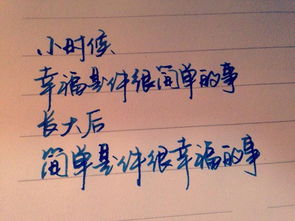 小时候
幸福是件很简单的事
长大后
简单是件很幸福的事